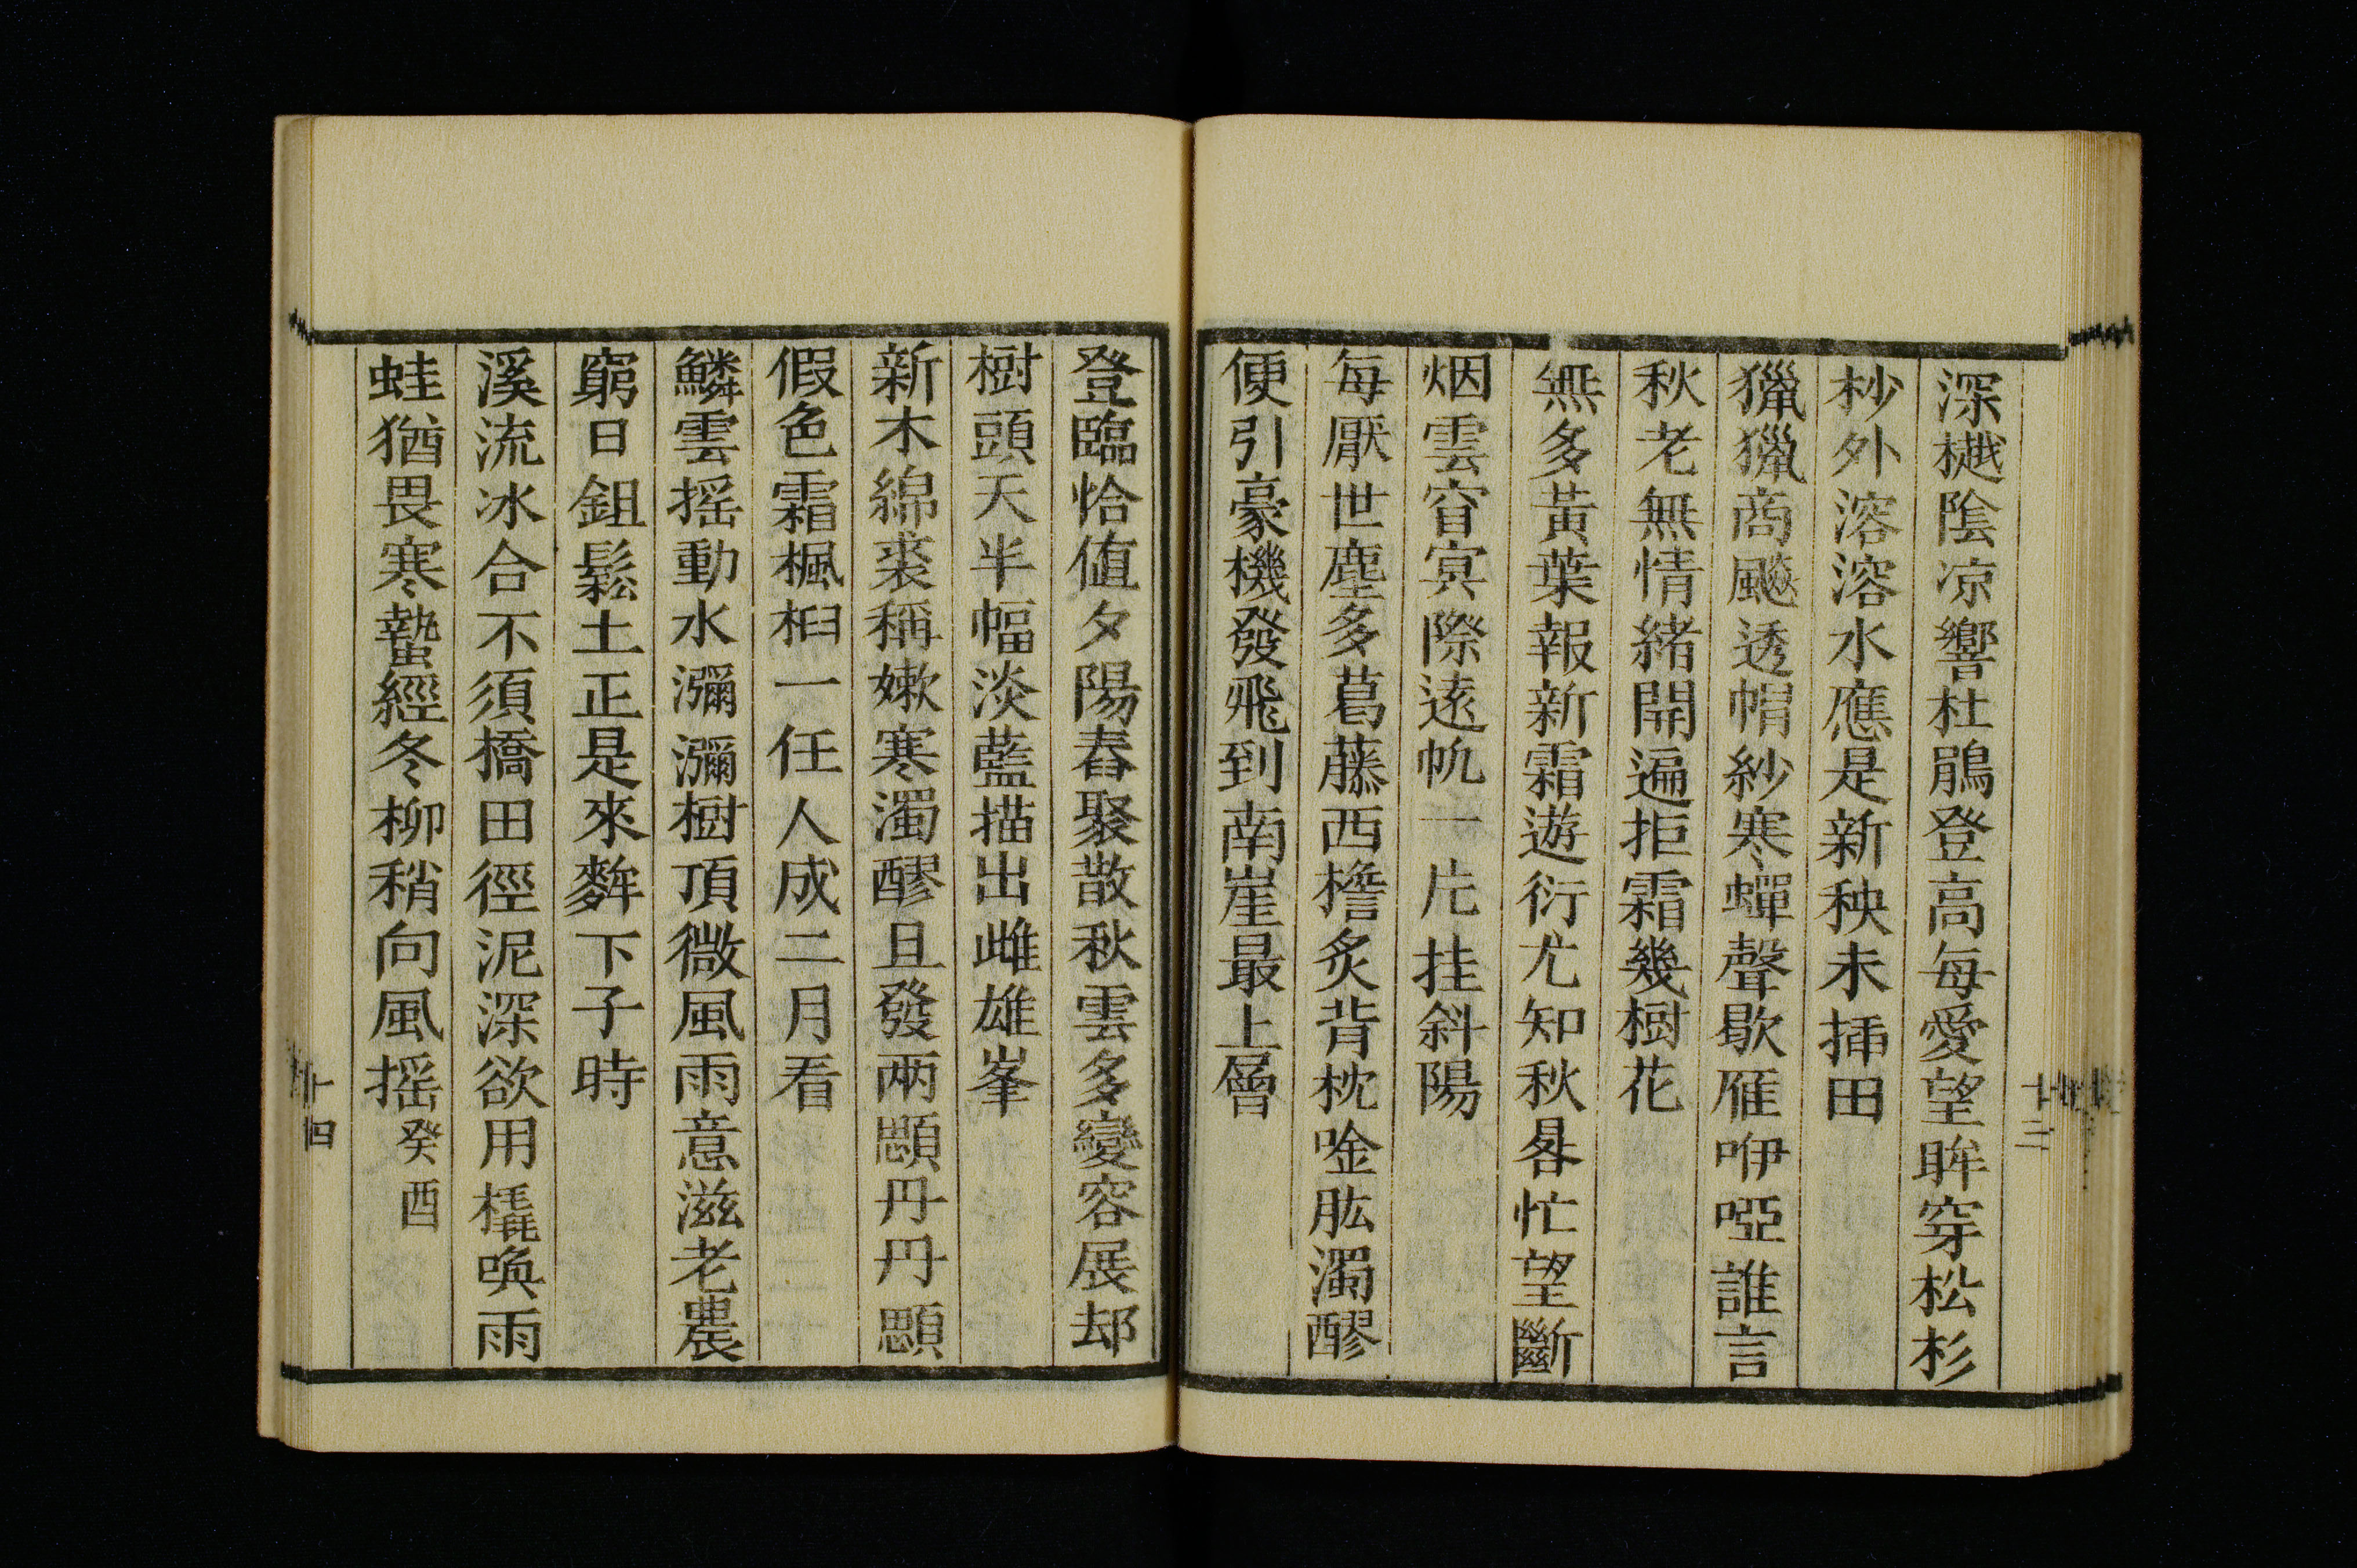 深樾陰凉響杜鵑登高每愛望眸穿松杉
杪外溶溶水應是新秧未插田
獵獵商飇透帽紗寒蟬聲歇雁咿啞誰言
秋老無情緒開遍拒霜幾樹花
無多黃葉報新霜遊衍尤知秋晷忙望斷
烟雲窅冥際遠帆一片挂斜陽
每厭世塵多葛藤西檐炙背枕唫肱濁醪
便引豪機發飛到南崖最上層
登臨恰值夕陽舂聚散秋雲多變容展却
樹頭天半幅淡藍描出雌雄峯
新木綿裘稱嫩寒濁醪且發兩顋丹丹顋
假色霜楓桕一任人成二月看
鱗雲摇動水瀰瀰樹頂微風雨意滋老農
窮日鉏鬆土正是來麰下子時
溪流冰合不須橋田徑泥深欲用橇喚雨
蛙猶畏寒蟄經冬柳稍向風摇癸酉
十四